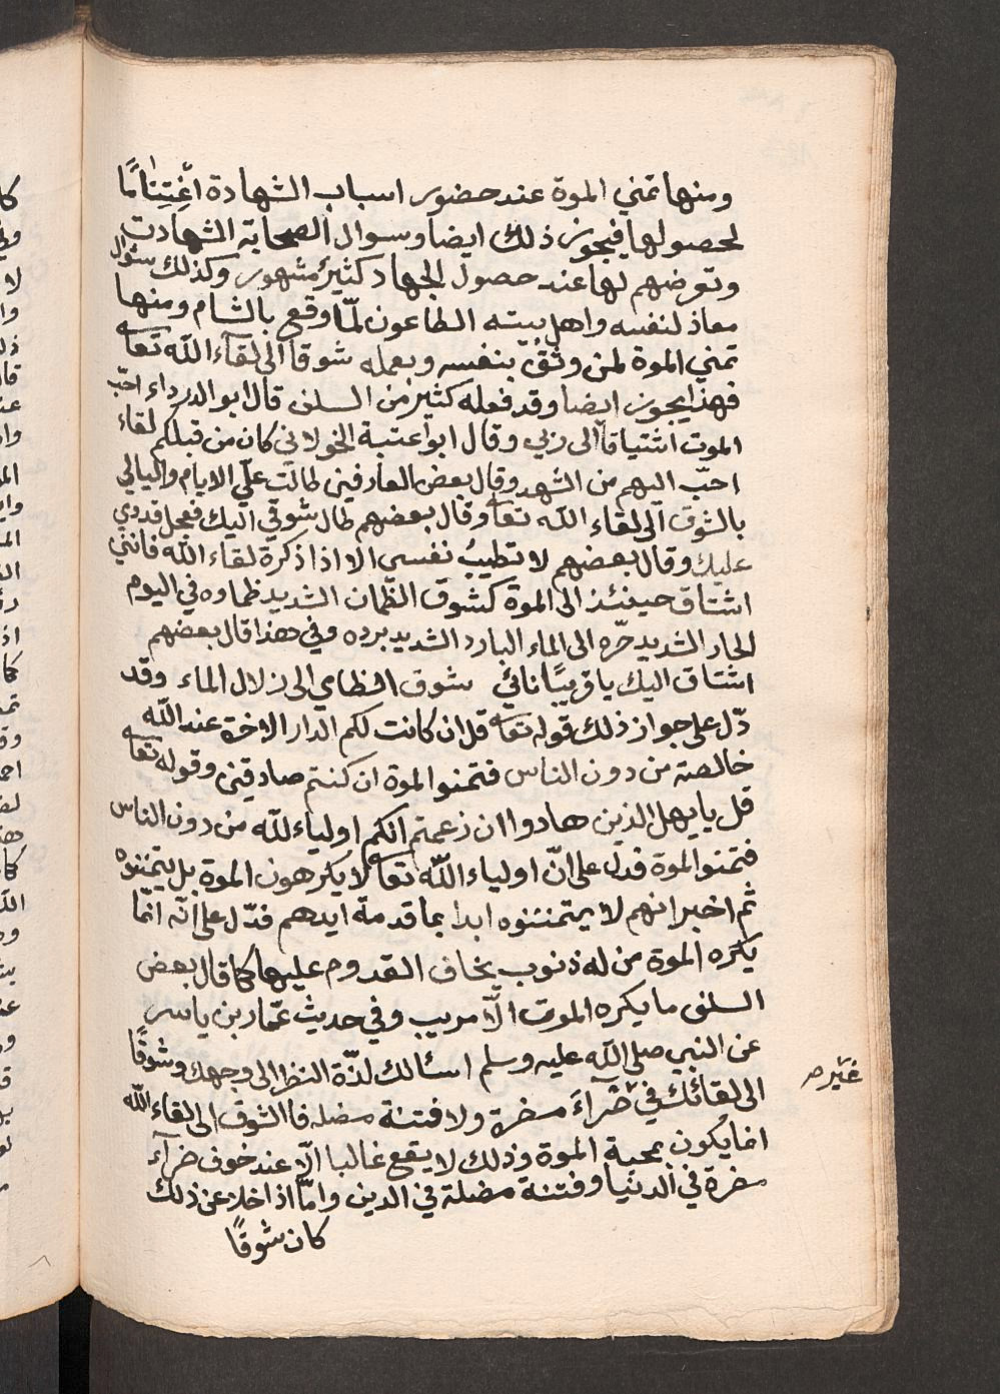 ومنها تمني الموة عند حضور اسباب الشهادة اغتنامًا
لحصولها فيجوز ذلك ايضا وسوال الصحابة الشهادت
وتعرضهم لها عند حصول الجهاد كثيرٌ مشهور وكذلك سوال
معاذ لنفسه واهل بيته الطاعون لمّا وقع بالشام ومنها
تمني الموة لمن وثق بنفسه وبعمله شوقا الى لقاء الله تعا
فهذا يجوز ايضا وقد فعله كثير من السلف قال ابو الدرداء احبّ
الموت اشتياقا الى ربي وقال ابو عتبة الخولاني كان من قبلكم لقاء
احبّ اليهم من الشهد وقال بعض العارفين طالت عليّ الايام والليالي
بالشوق الى لقاء الله تعا وقال بعضهم طال شوقي اليك فعجل قدومي
عليك وقال بعضهم لا تطيبُ نفسي الا اذا ذكرة لقاء الله فانني
اشتاق حينئذ الى الموة كشوق الظمان الشديد ظماوه في اليوم
الحار الشديد حرّه الى الماء البارد الشديد برده وفي هذا قال بعضهم
اشتاق اليك يا قريبًا نائي شوق الظامي الى زلال الماء وقد
دّل على جواز ذلك قوله تعا قل ان كانت لكم الدار الاخرة عند الله
خالصة من دون الناس فتمنوا الموة ان كنتم صادقين وقوله تعا
قل يايهل الذين هادوا ان زعمتم انكم اولياء لله من دون الناس
فتمنوا الموة فدل على انّ اولياء الله تعا لا يكرهون الموة بل يتمنوه
ثم اخبر انهم لا يتمننوه ابدا بما قدمة ايدهم فدّل على انّه انمّا
يكره الموة من له ذنوب يخاف القدوم عليها كما قال بعض
السلف ما يكره الموت الّا مريب وفي حديث عمّار بن ياسر
عن النبي صلى الله عليه وسلم اسئالك لذّة النظر الى وجهك وشوقًا
الى لقائك في ضرآءَ مضرة ولا فتنة مضله فاالشوق الى لقاء الله
غير صح
انما يكون بمحبة الموة وذلك لا يقع غالبا الّا عند خوف ضرآء
مضرة في الدنيا وفتنة مضلة في الدين وامّا اذا خلا عن ذلك
كان شوقًا